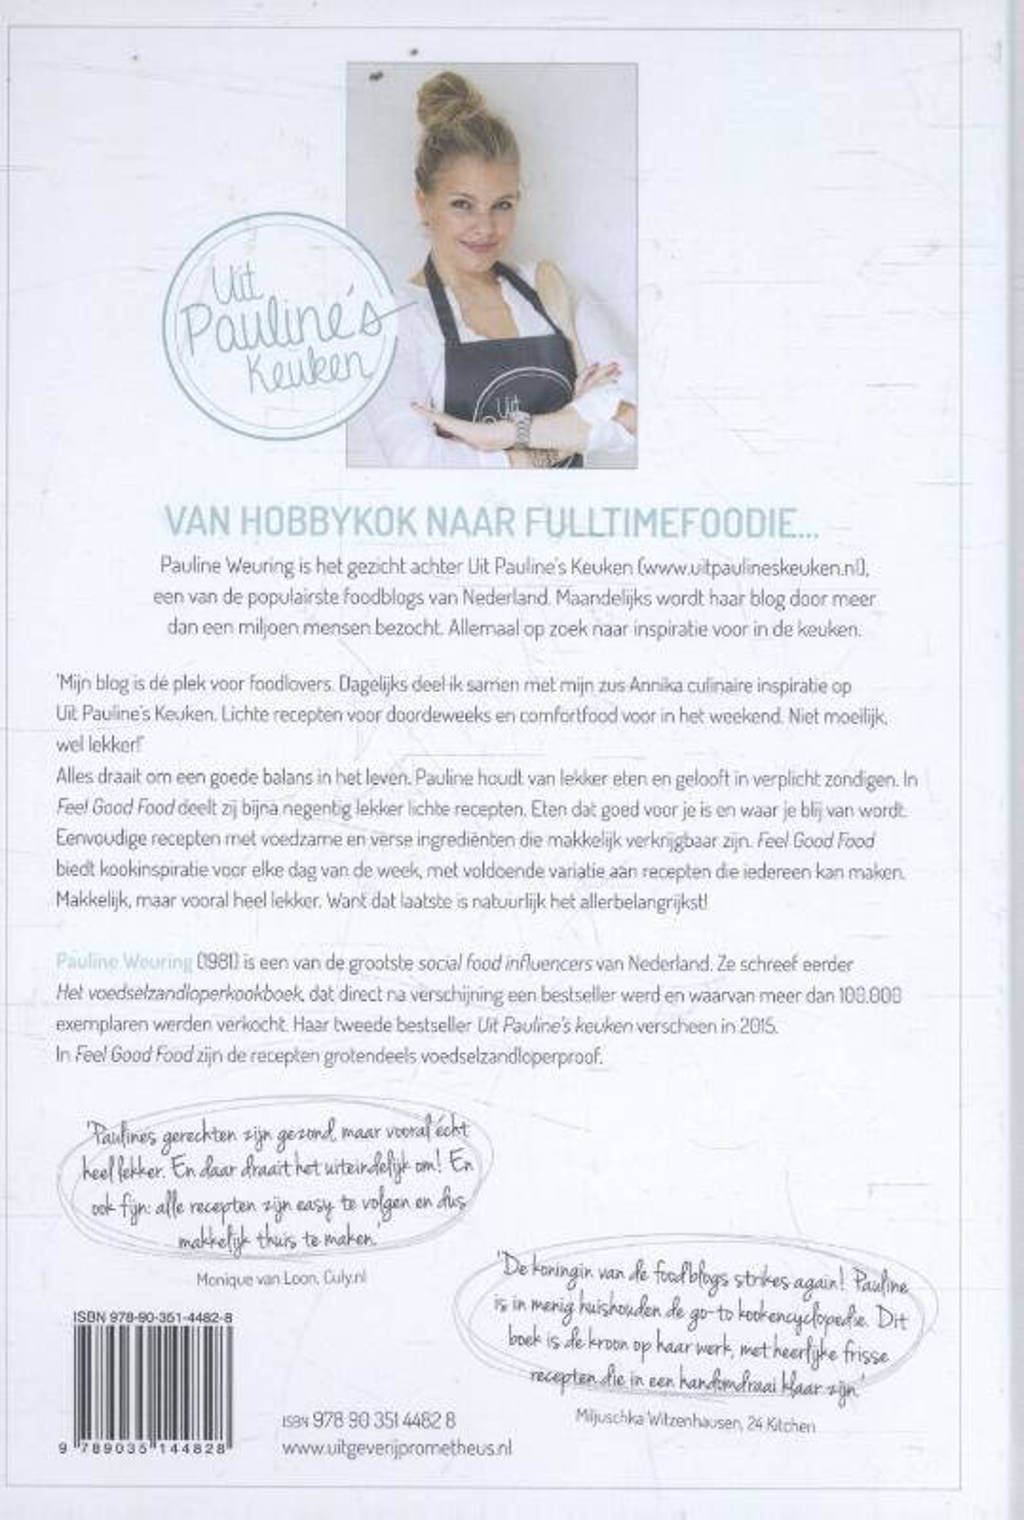 Uit
Pauline's
Keuken
Uit
VAN HOBBYKOK NAAR FULLTIMEFOODIE...
Pauline Weuring is het gezicht achter Uit Pauline's Keuken (www.uitpaulineskeuken.nl),
een van de populairste foodblogs van Nederland. Maandelijks wordt haar blog door meer
dan een miljoen mensen bezocht. Allemaal op zoek naar inspiratie voor in de keuken.
'Mijn blog is dé plek voor foodlovers. Dagelijks deel ik samen met mijn zus Annika culinaire inspiratie op
Uit Pauline's Keuken. Lichte recepten voor doordeweeks en comfortfood voor in het weekend. Niet moeilijk,
wel lekker!'
Alles draait om een goede balans in het leven. Pauline houdt van lekker eten en gelooft in verplicht zondigen. In
Feel Good Food deelt zij bijna negentig lekker lichte recepten. Eten dat goed voor je is en waar je blij van wordt.
Eenvoudige recepten met voedzame en verse ingrediënten die makkelijk verkrijgbaar zijn. Feel Good Food
biedt kookinspiratie voor elke dag van de week, met voldoende variatie aan recepten die iedereen kan maken.
Makkelijk, maar vooral heel lekker. Want dat laatste is natuurlijk het allerbelangrijkst!
Pauline Weuring (1981) is een van de grootste social food influencers van Nederland. Ze schreef eerder
Het voedselzandloperkookboek, dat direct na verschijning een bestseller werd en waarvan meer dan 100.000
exemplaren werden verkocht. Haar tweede bestseller Uit Pauline's keuken verscheen in 2015.
In Feel Good Food zijn de recepten grotendeels voedselzandloperproof.
'Paulines gerechten zijn gezond, maar vooral écht
heel lekker. En daar draait het uiteindelijk om! En
ook fijn: alle recepten zijn easy te volgen en dus
makkelijk thuis te maken.'
Monique van Loon, Culy.nl
'De koningin van de foodblogs strikes again! Pauline
is in menig huishouden de go-to kookencyclopedie. Dit
boek is de kroon op haar werk, met heerlijke frisse
recepten die in een handomdraai klaar zijn'
Miljuschka Witzenhausen, 24 Kitchen
ISBN 978-90-351-4482-8
9 789035 144828
ISBN 978 90 351 4482 8
www.uitgeverijprometheus.nl